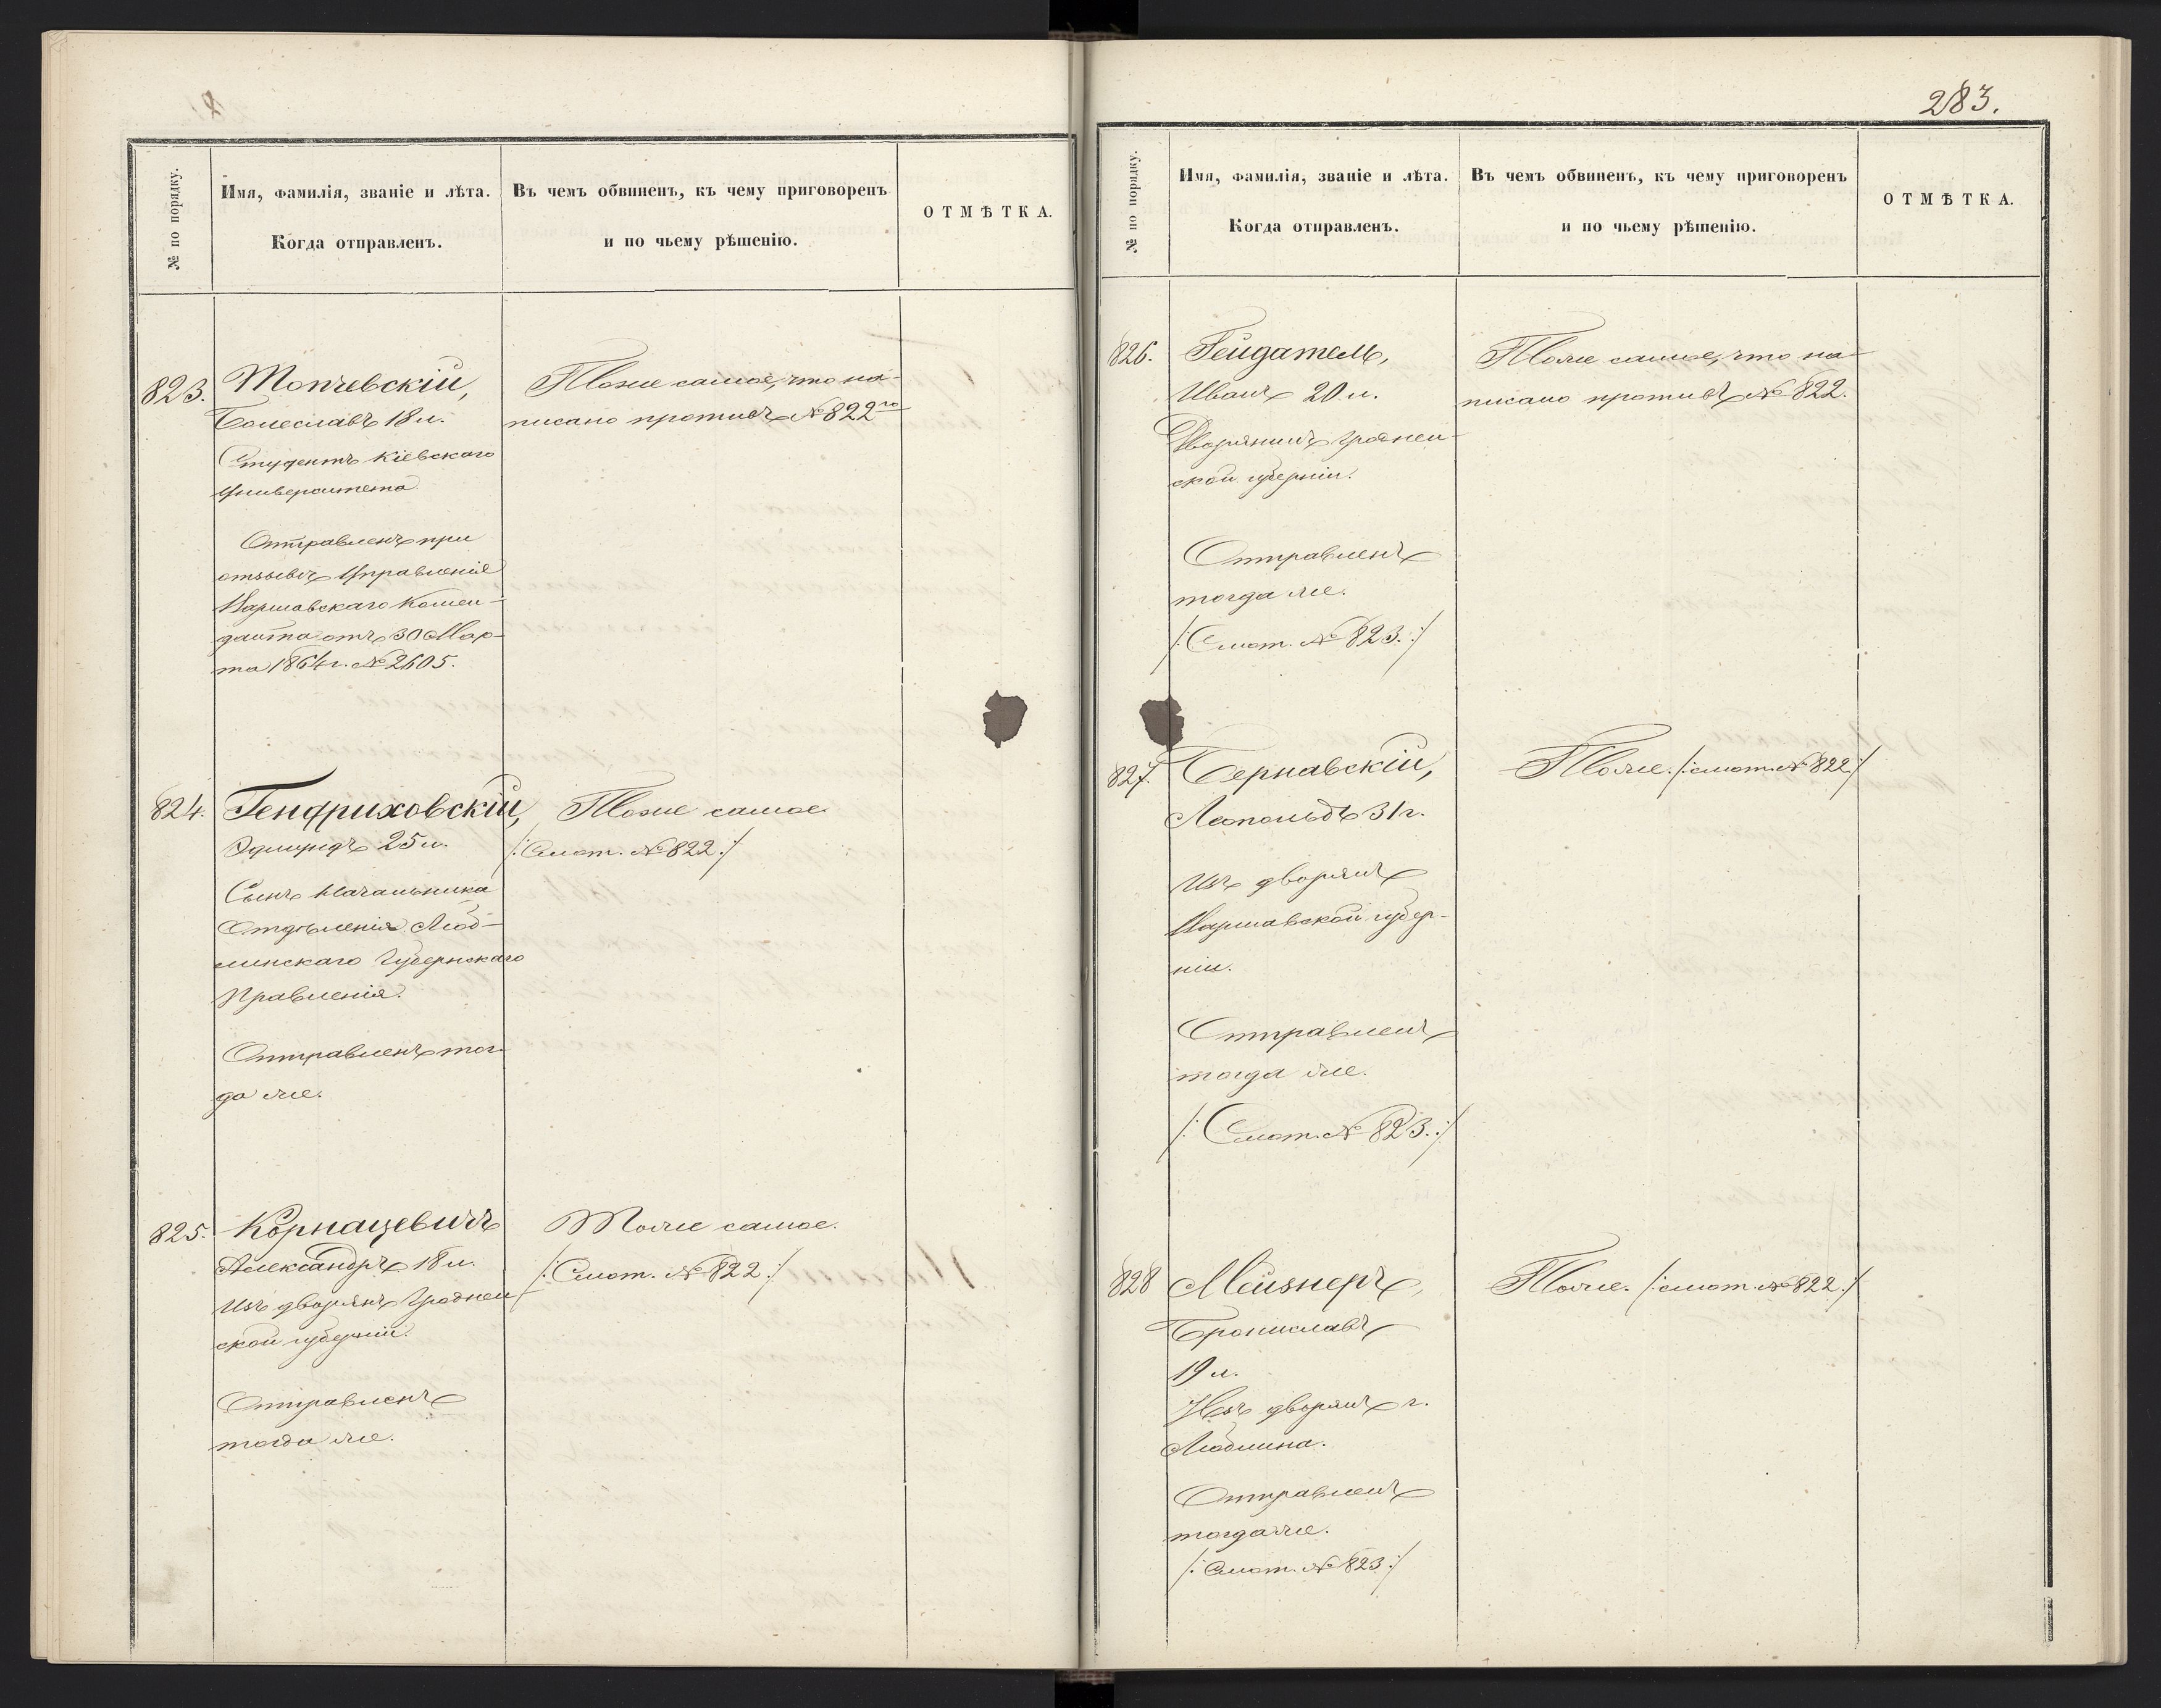 № по порядку.
Имя, фамилія, званіе и лѣта.
Когда отправленъ.
Въ чемъ обвиненъ, къ чему приговоренъ
и по чьему рѣшенію.
ОТМѢТКА.
823.
Топчевскій,
Болеславъ 18 л.
Студентъ Кіевскаго
Университета.
Отправленъ при
отзывѣ Управленія
Варшавскаго Комен-
данта отъ 30 Мар-
та 1864 г. № 2605.
Тоже самое, что на-
писано противъ № 822го
824.
Гендриховскій,
Эдмундъ 25 л.
Сынъ Начальника
Отдѣленія Люб-
линскаго Губернскаго
Правленія.
Отправленъ тог-
да же.
Тоже самое
/: Смот. № 822 :/
825.
Корнацевичъ
Александръ 18 л.
Изъ дворянъ Гроднен-
ской губерніи.
Отправленъ
тогда же.
Тоже самое.
/: Смот. № 822 :/
283.
№ по порядку.
Имя, фамилія, званіе и лѣта.
Когда отправленъ.
Въ чемъ обвиненъ, къ чему приговоренъ
и по чьему рѣшенію.
ОТМѢТКА.
826.
Гейдатель,
Иванъ 20 л.
Дворянинъ Гроднен-
ской губерніи.
Отправленъ
тогда же.
/: Смот. № 823. :/
Тоже самое, что на-
писано противъ № 822.
827.
Бернавскій,
Леопольдъ 31 г.
Изъ дворянъ
Варшавской губер-
ніи.
Отправленъ
тогда же.
/: Смот. № 823. :/
Тоже. /: смот. № 822 :/
828
Мейзнеръ,
Брониславъ
19 л.
Изъ дворянъ г.
Люблина.
Отправленъ
тогда же.
/: Смот. № 823 :/
Тоже. /: смот. № 822 :/